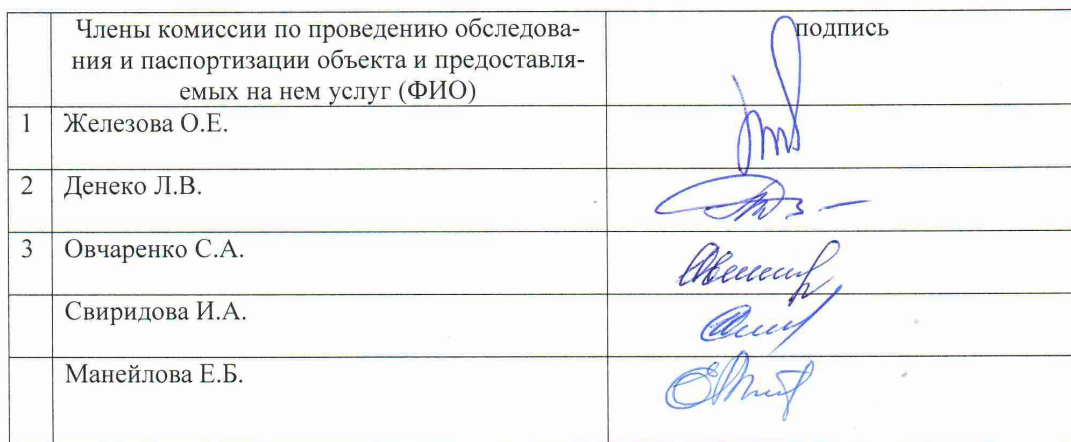 Члены комиссии по проведению обследова-
ния и паспортизации объекта и предоставля-
емых на нем услуг (ФИО)
подпись
1 Железова О.Е.
2 Денеко Л.В.
3 Овчаренко С.А.
Свиридова И.А.
Манейлова Е.Б.